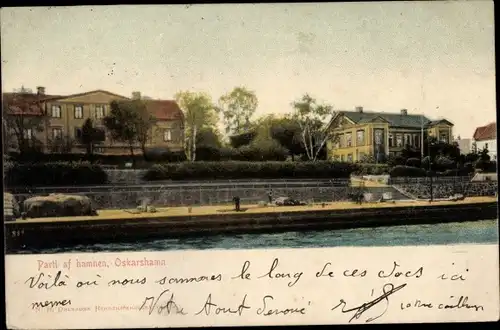 Parti af hamnen, Oskarshamn
Voilà ou nous sommes le long de ces docs ici
mêmes Votre tout dévoué